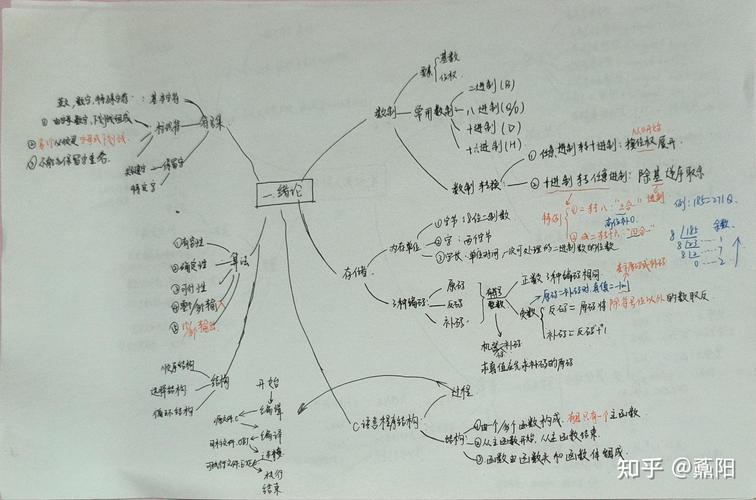 一.绪论
数制
要素
基数
位权
常用数制
二进制(B)
八进制(Q/O)
十进制(D)
十六进制(H)
数制转换
① 任意进制转十进制:按位权展开
② 十进制转任意进制:除基逆序取余
特例
① 二转八:"三合一"
高位补0
② 二转十六:"四合一"
例:185=271Q
余数
8 185
8 23 …… 1
8 2 …… 7
0 …… 2
存储
内存单位
① 字节:8位二进制数
② 字:两个字节
③ 字长:单位时间一次可处理的二进制数的位数
3种编码
原码
反码
补码
整数
正数 3种编码相同
负数
反码=原码将除符号位以外的数取反
补码=反码+1
机器:补码
求真值应先求补码的原码
C语言程序结构
过程
结构
① 由一个/多个函数构成,有且只有一个主函数
② 从主函数开始,从主函数结束
③ 函数由函数头和函数体组成
开始
编辑
源文件.C
编译
目标文件.OBJ
连接
可执行文件.EXE
执行
结束
结构
顺序结构
选择结构
循环结构
算法
① 有穷性
② 确定性
③ 可行性
字符集
基本字符
英文,数字,特殊字符
标识符
① 由字母,数字,下划线组成
② 首个必须是字母或下划线
③ 不能与保留字重名
保留字
关键字
特定字
知乎 @藠阳